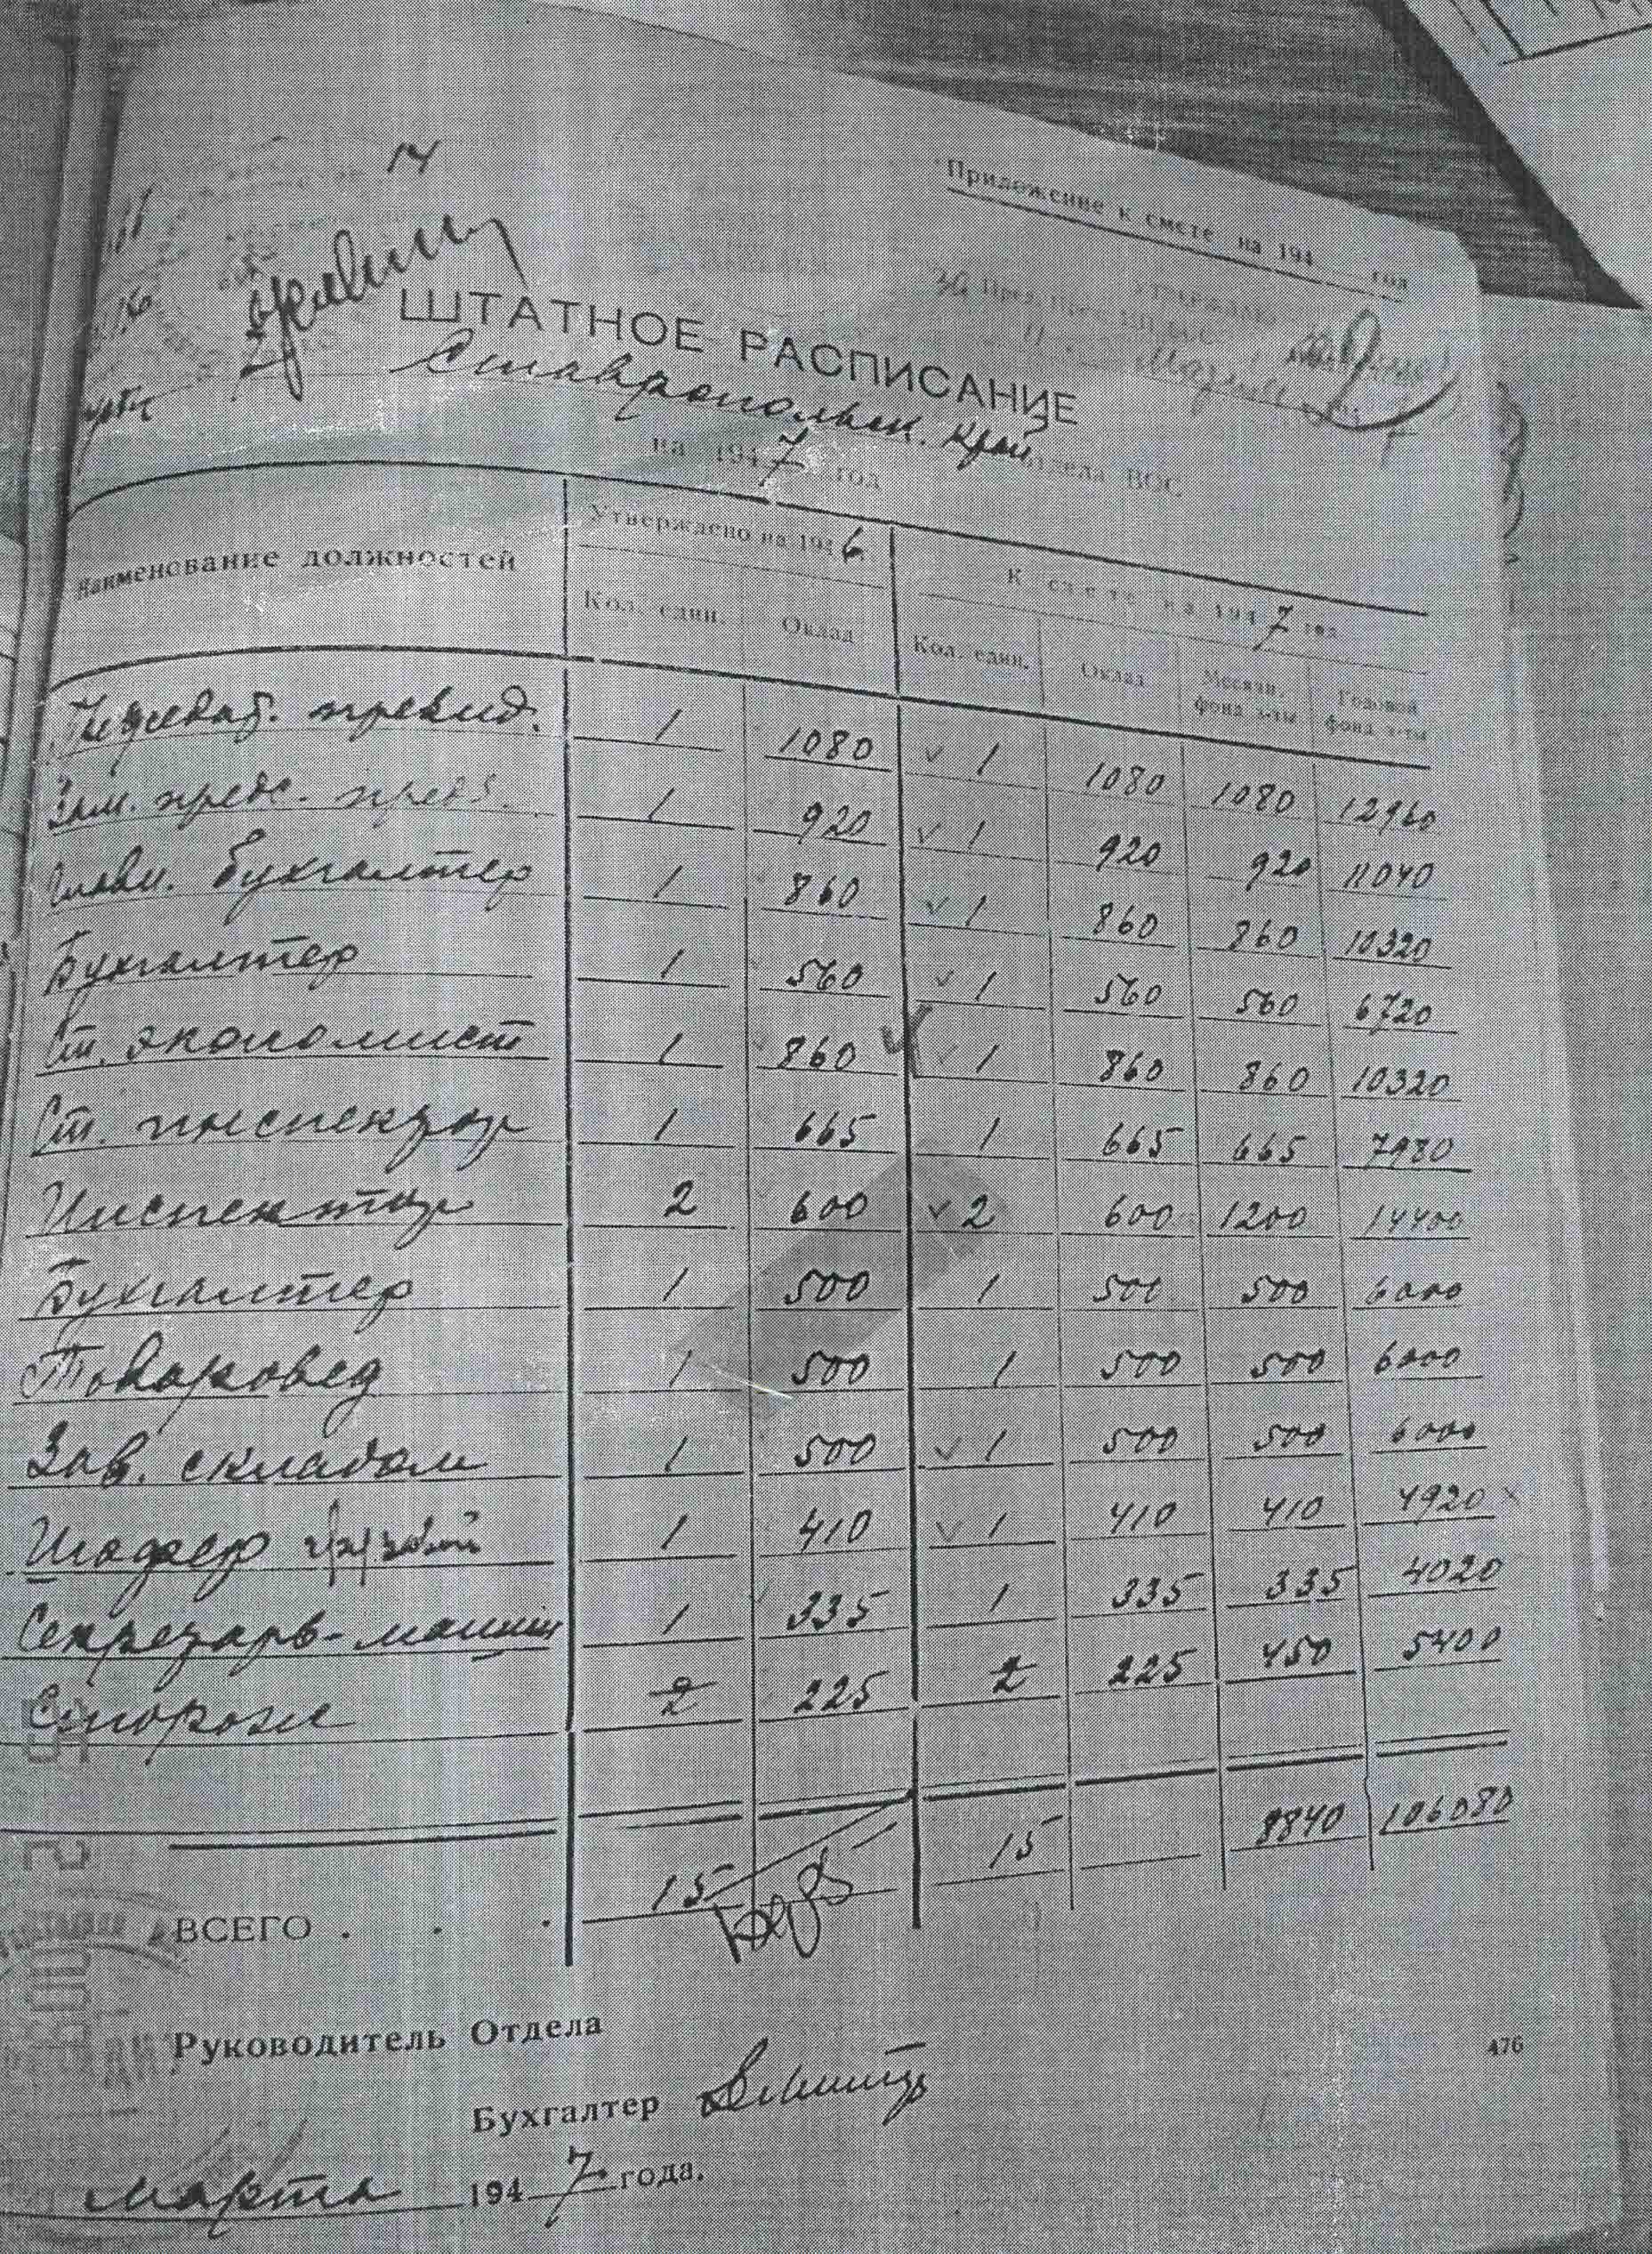 14
Приложение к смете на 194 год
ШТАТНОЕ РАСПИСАНИЕ
Ставропольск. край отдела ВОС
на 1947 год
Наименование должностей
Утверждено на 1946 г.
К смете на 1947 год
Кол. един.
Оклад
Кол. един.
Оклад
Месячн. фонд з-ты
Годовой фонд з-ты
Председат. презид. 1 1080 1 1080 1080 12960
Зам. предс. през. 1 920 1 920 920 11040
Главн. бухгалтер 1 860 1 860 860 10320
Бухгалтер 1 560 1 560 560 6720
Ст. экономист 1 860 1 860 860 10320
Ст. инспектор 1 665 1 665 665 7980
Инспектор 2 600 2 600 1200 14400
Бухгалтер 1 500 1 500 500 6000
Товаровед 1 500 1 500 500 6000
Зав. складом 1 500 1 500 500 6000
Шофер грузовой 1 410 1 410 410 4920
Секретарь-машин 1 335 1 335 335 4020
Сторожи 2 225 2 225 450 5400
ВСЕГО . . . 15 15 8840 106080
Руководитель Отдела
476
Бухгалтер
марта 1947 года.